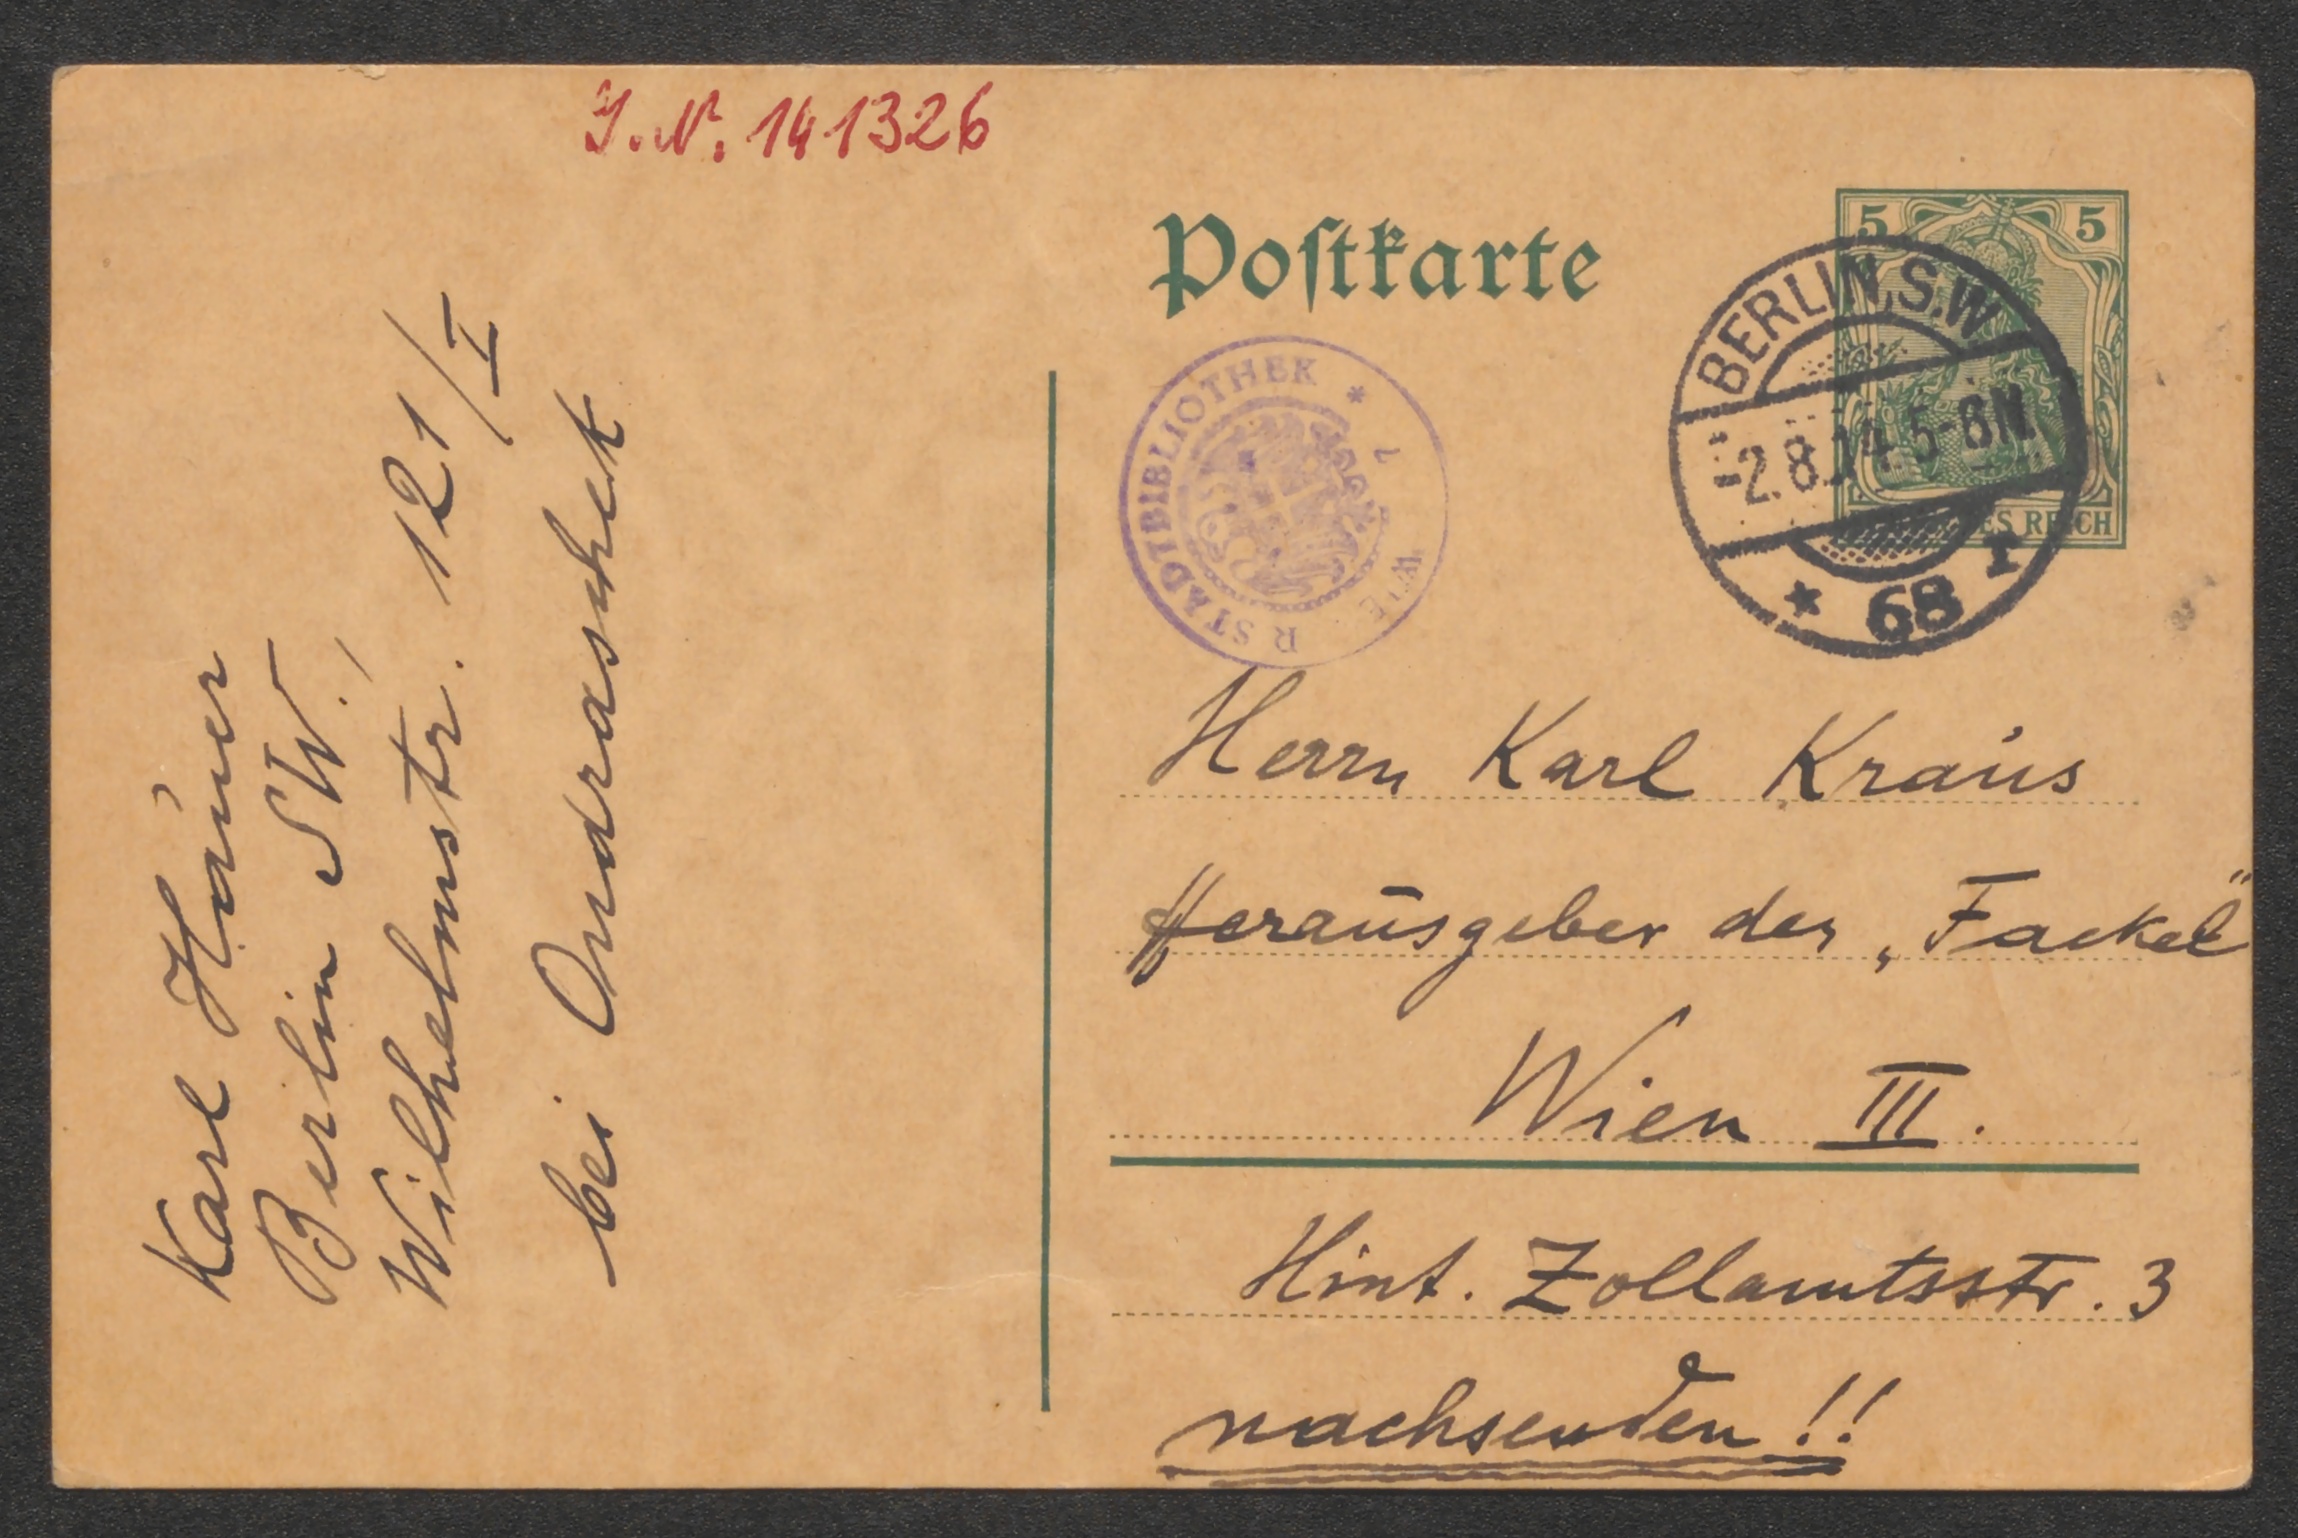 J. N. 141326
Postkarte
5 5
BERLIN, S.W.
-2.8.14. 5-6N.
* 68 r
STADTBIBLIOTHEK * WIENER
Karl Hauer
Berlin SW,
Wilhelmstr. 121/I
bei Ondraschek
Herrn Karl Kraus
Herausgeber der „Fackel"
Wien III.
Hint. Zollamtsstr. 3
nachsenden!!